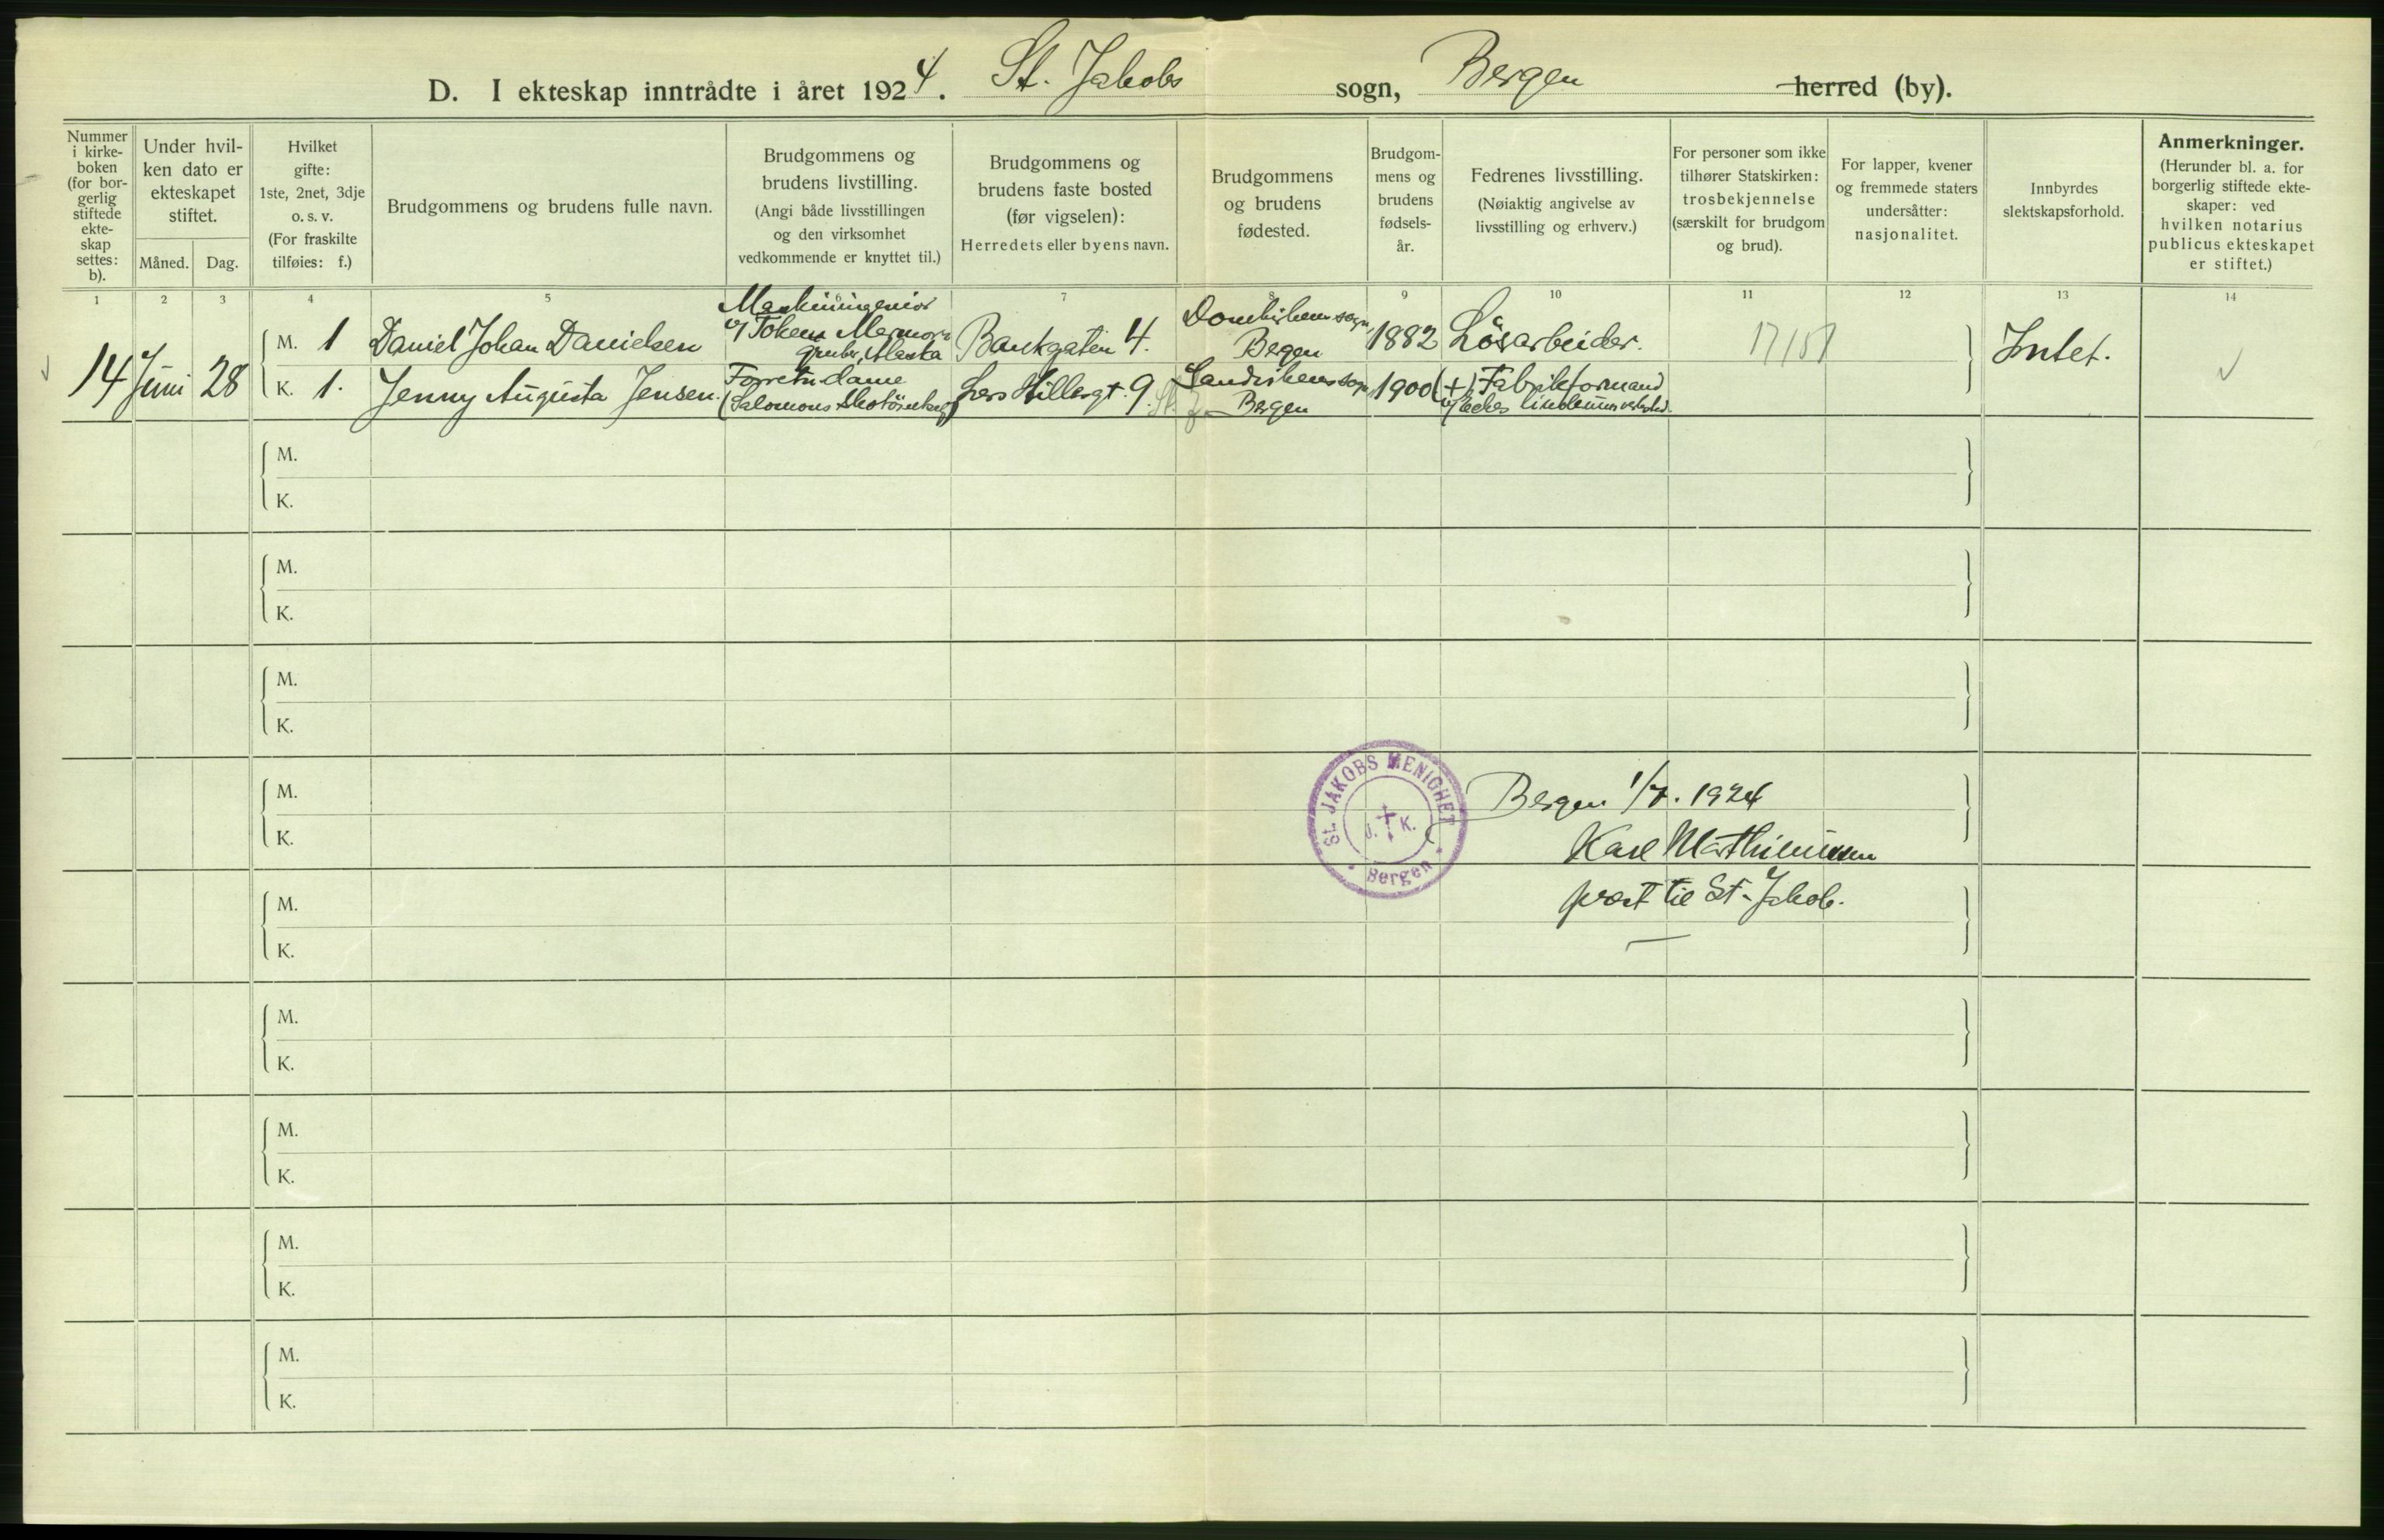 D. I ekteskap inntrådte i året 1924. St. Jakobs sogn, Bergen herred (by).
Nummer
i kirke-
boken
(for bor-
gerlig
stiftede
ekte-
skap
settes:
b).
Under hvil-
ken dato er
ekteskapet
stiftet.
Måned.
Dag.
Hvilket
gifte:
1ste, 2net, 3dje
o. s. v.
(For fraskilte
tilføies: f.)
Brudgommens og brudens fulle navn.
Brudgommens og
brudens livstilling.
(Angi både livsstillingen
og den virksomhet
vedkommende er knyttet til.)
Brudgommens og
brudens faste bosted
(før vigselen):
Herredets eller byens navn.
Brudgommens
og brudens
fødested.
Brudgom-
mens og
brudens
fødsels-
år.
Fedrenes livsstilling.
(Nøiaktig angivelse av
livsstilling og erhverv.)
For personer som ikke
tilhører Statskirken:
trosbekjennelse
(særskilt for brudgom
og brud).
For lapper, kvener
og fremmede staters
undersåtter:
nasjonalitet.
Innbyrdes
slektskapsforhold.
Anmerkninger.
(Herunder bl. a. for
borgerlig stiftede ekte-
skaper: ved
hvilken notarius
publicus ekteskapet
er stiftet.)
1 2 3 4 5 7 8 9 10 11 12 13 14
14 Juni 28
M. 1 Daniel Johan Danielsen
Maskiningeniør
v/ Tokens
gruber, Alaska
Bankgaten 4.
Domkirkens sogn,
Bergen
1882
Løsarbeider.
17/151
Intet.
K. 1. Jenny Augusta Jensen.
Forretn.dame
(Salomons Skotøimkag)
Lars Hillesgt. 9.
Sandvikens sogn
Bergen
1900
(+) Fabrikformand
M.
K.
M.
K.
M.
K.
M.
K.
M.
K.
M.
K.
M.
K.
M.
K.
M.
K.
ST. JAKOBS MENIGHET
J. K.
Bergen
Bergen 1/7. 1924
Karl Mathiesen
prest til St. Jakob.